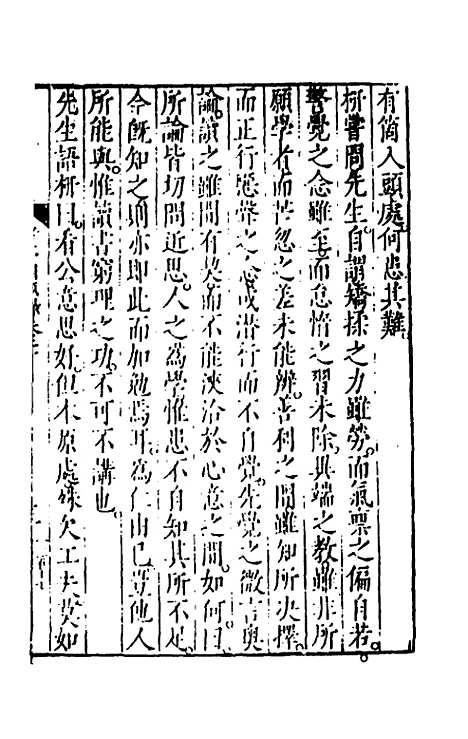 有箇入頭處何患其難
枅嘗問先生自謂矯揉之力雖勞而氣稟之偏自若
警覺之念雖至而怠惰之習未除異端之教雖非所
願學者而芒忽之差未能辨善利之間雖知所決擇
而正行惡聲之念或潛行而不自覺先覺之微言奧
論讀之雖間有契而不能浹洽於心意之間如何曰
所論皆切問近思人之為學惟患不自知其所不足
今既知之則亦即此而加勉焉耳為仁由己豈他人
所能與惟讀書窮理之功不可不講也
先生語枅曰看公意思好但本原處殊欠工夫莫如